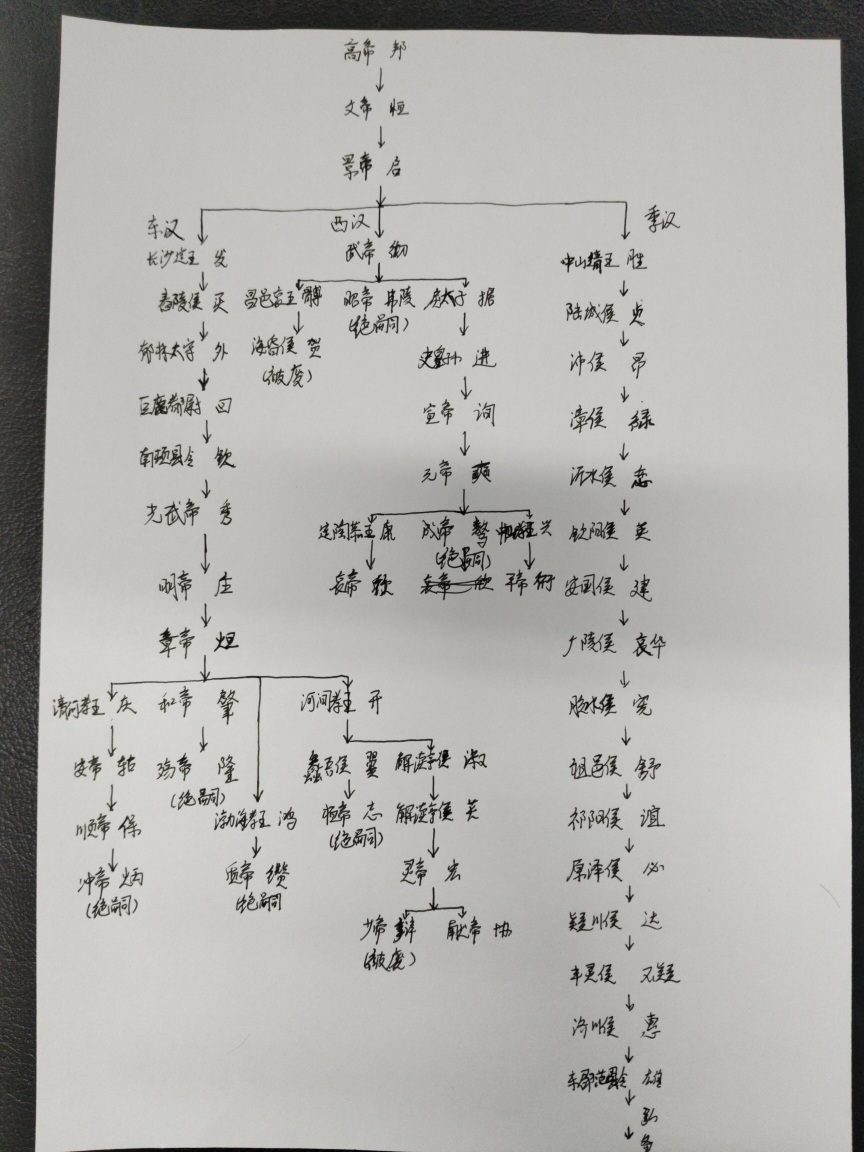 高帝 邦
文帝 恒
景帝 启
东汉 西汉 季汉
长沙定王 发
舂陵侯 买
郁林太守 外
巨鹿都尉 回
南顿县令 钦
光武帝 秀
明帝 庄
章帝 炟
清河孝王 庆 和帝 肇 河间孝王 开
安帝 祜 殇帝 隆
(绝嗣)
顺帝 保
冲帝 炳
(绝嗣)
渤海孝王 鸿
质帝 缵
绝嗣
蠡吾侯 翼 解渎亭侯 淑
桓帝 志 解渎亭侯 苌
(绝嗣)
灵帝 宏
少帝 辩 献帝 协
(被废)
武帝 彻
昌邑哀王 髆 昭帝 弗陵 戾太子 据
(绝嗣)
海昏侯 贺
(被废)
史皇孙 进
宣帝 询
元帝 奭
定陶恭王 康 成帝 骜 中山孝王 兴
(绝嗣)
哀帝 欣 哀帝 欣 平帝 衎
中山靖王 胜
陆城侯 贞
沛侯 昂
漳侯 禄
沂水侯 恋
钦阳侯 英
安国侯 建
广陵侯 哀
胶水侯 宪
祖邑侯 舒
祁阳侯 谊
原泽侯 必
颍川侯 达
丰灵侯 不疑
济川侯 惠
东郡范县令 雄
弘
备